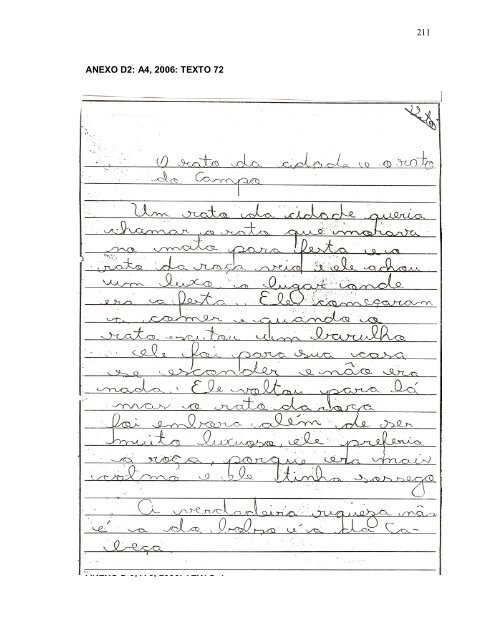 211
ANEXO D2: A4, 2006: TEXTO 72
O rato da cidade e o rato
do Campo
Um rato da cidade queria
chamar o rato que morava
no mato para festa e o
rato da roça veio e ele achou
um luxo o lugar onde
era a festa. Ele começaram
a comer e quando o
rato escutou um barulho
ele foi para sua casa
se esconder e não era
nada. Ele voltou para lá
mas o rato da roça
foi embora além de ser
muito luxuoso, ele preferia
a roça, porque era mais
calma e ele tinha sossego
A verdadeira riqueza não
é a do bolso é a da Ca-
beça